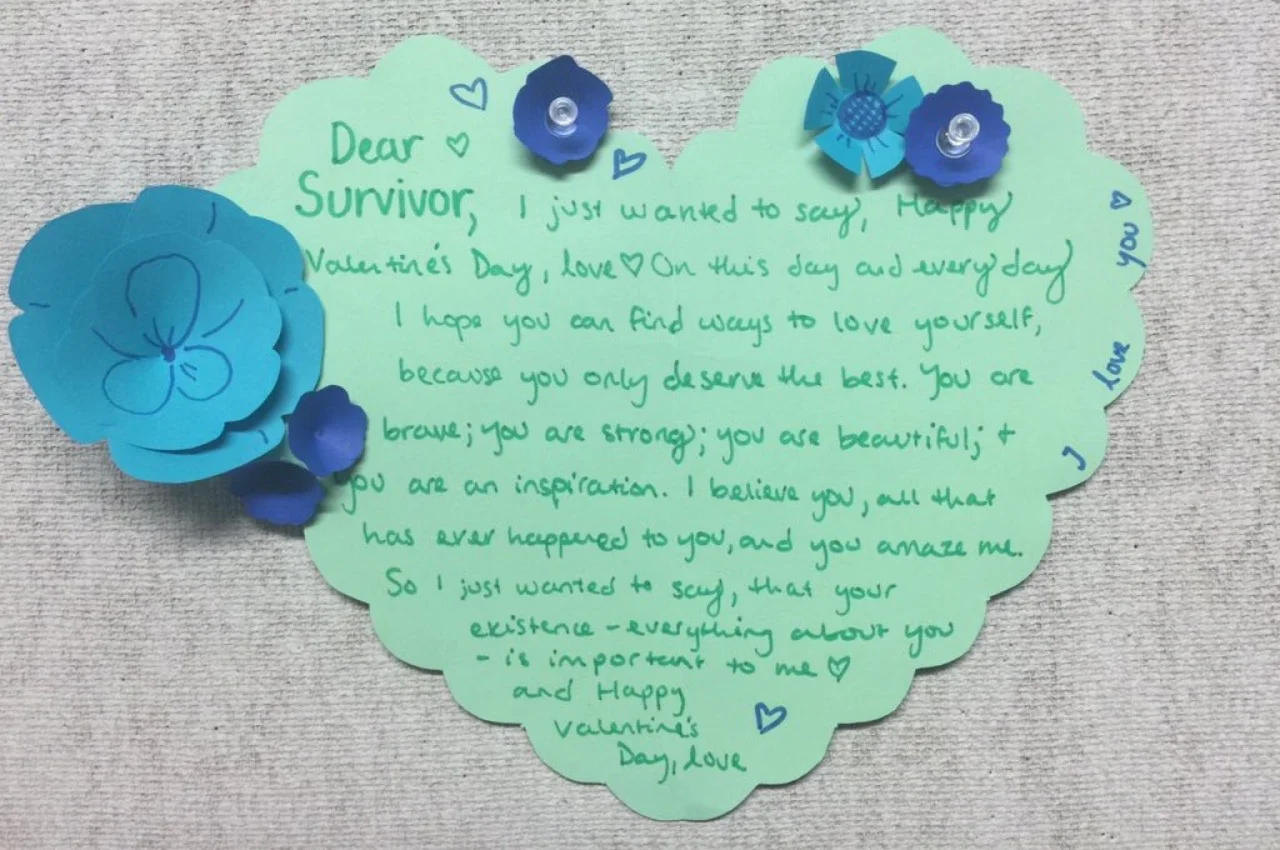 Dear ♡
Survivor, I just wanted to say, Happy
Valentine's Day, love ♡ On this day and every day
I hope you can find ways to love yourself,
because you only deserve the best. You are
brave; you are strong; you are beautiful; +
you are an inspiration. I believe you, all that
has ever happened to you, and you amaze me.
So I just wanted to say, that your
existence - everything about you
- is important to me ♡
and Happy
Valentine's
Day, love
I love you ♡